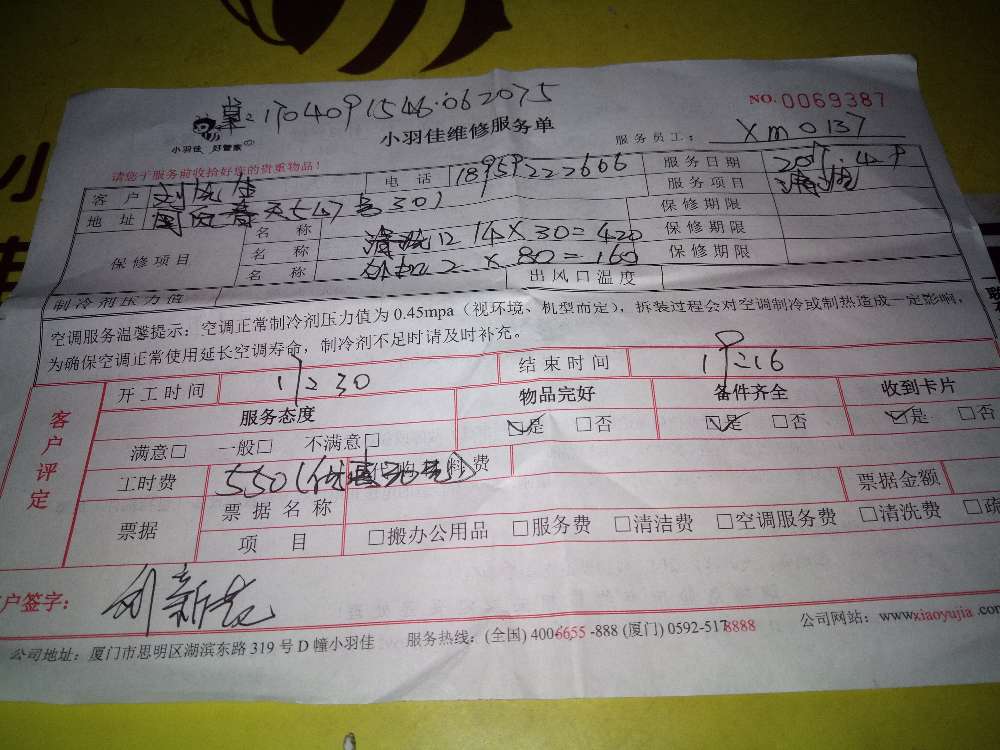 1704091546.062075
NO.0069387
小羽佳 好管家
小羽佳维修服务单
服务员工： XM0137
请您于服务前收拾好您的贵重物品！
客 户 电 话 18959222666 服务日期
地 址 547号301 服务项目 清洗
保修期限
保修项目 名 称 清洗 14X30=420 保修期限
名 称 2 X 80=160 保修期限
名 称
制冷剂压力值 出风口温度
空调服务温馨提示：空调正常制冷剂压力值为 0.45mpa（视环境、机型而定），拆装过程会对空调制冷或制热造成一定影响，
为确保空调正常使用延长空调寿命，制冷剂不足时请及时补充。
客户评定
开工时间 结束时间
服务态度 物品完好 备件齐全 收到卡片
满意□ 一般□ 不满意□ ☑是 □否 ☑是 □否 ☑是 □否
工时费 550 料费
票据 票据名称 票据金额
项 目 □搬办公用品 □服务费 □清洁费 □空调服务费 □清洗费 □疏
户签字：
公司地址：厦门市思明区湖滨东路 319 号 D 幢小羽佳 服务热线：(全国) 4006655-888 (厦门) 0592-5178888 公司网站：www.xiaoyujia.com